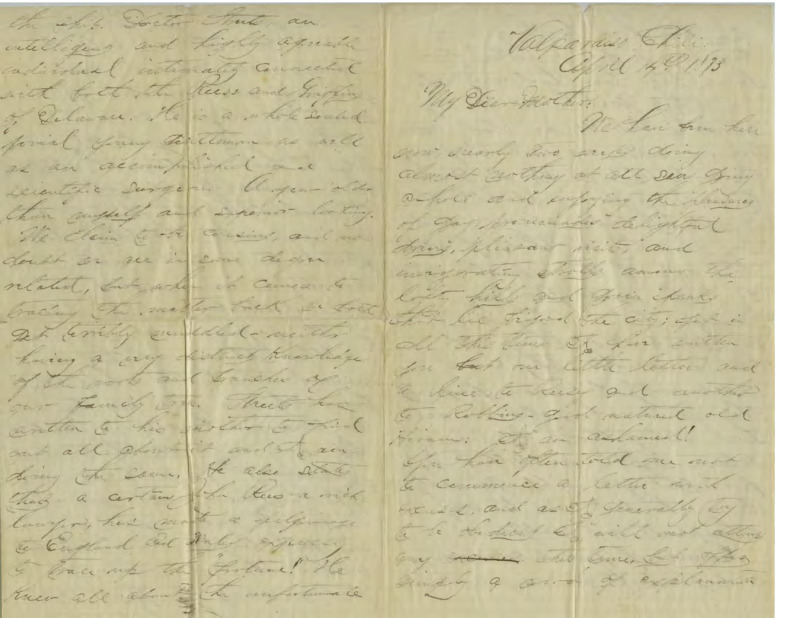 Valparaiso Chili
April 4th 1893
My Dear Mother.
We have been here
now nearly two weeks doing
almost nothing at all save going
ashore and enjoying the pleasures
of gay promenades delightful
drives, pleasant visits and
invigorating strolls among the
lofty hills and
that lie beyond the city; and in
all this time I have written
you but one little letter and
a line to Reese and another
to good natured old
Hiram: I am ashamed!
You have often told me not
to commence a letter with
and as I generally try
to be obedient I will not
any this time,
simply a word of explanation
the ship. Doctor Streets, an
intelligent and highly agreeable
individual intimately connected
with both the Reese and Griffin
of Delaware. He is a whole souled
jovial young gentleman as well
as an accomplished and
scientific surgeon. A year older
than myself and superior looking.
We claim to be cousins, and no
doubt we are in some degree
related, but when it comes to
tracing the matter back we both
get terribly muddled - neither
having a very distinct knowledge
of the roots and branches of
our family tree. Streets has
written to his mother to find
out all about it and I am
doing the same. He also states
that a certain John Rees a rich
lawyer, has made a pilgrimage
to England and expressly
to trace up the "fortune!" He
knew all about the unfortunate